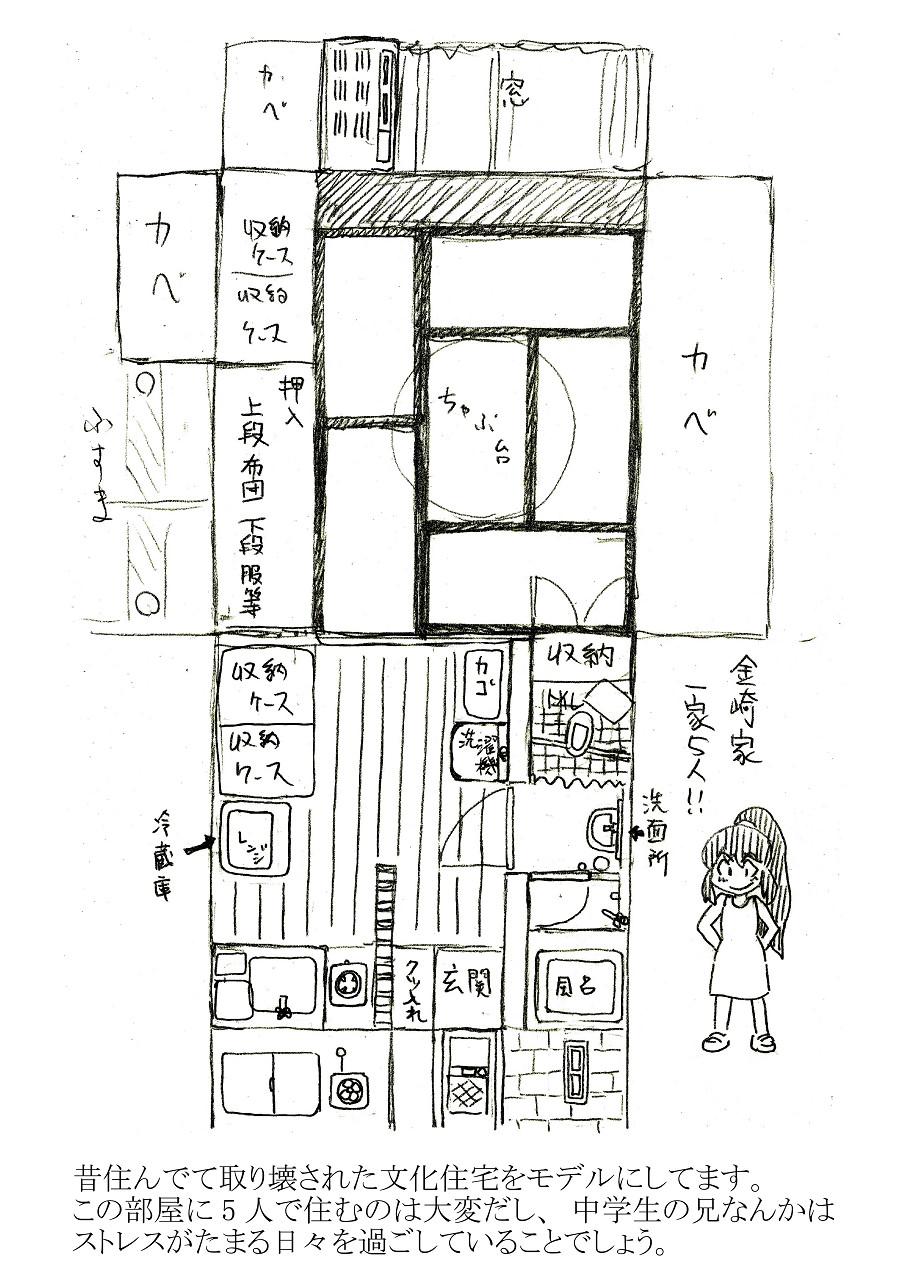 カベ
窓
カベ
収納
ケース
収納
ケース
カベ
押入
上段 布団 下段 服等
ふすま
ちゃぶ台
収納
ケース
収納
ケース
カゴ
洗濯機
収納
金崎家
一家5人!!
冷蔵庫
レンジ
洗面所
クツ入れ
玄関
風呂
昔住んでて取り壊された文化住宅をモデルにしてます。
この部屋に５人で住むのは大変だし、中学生の兄なんかは
ストレスがたまる日々を過ごしていることでしょう。